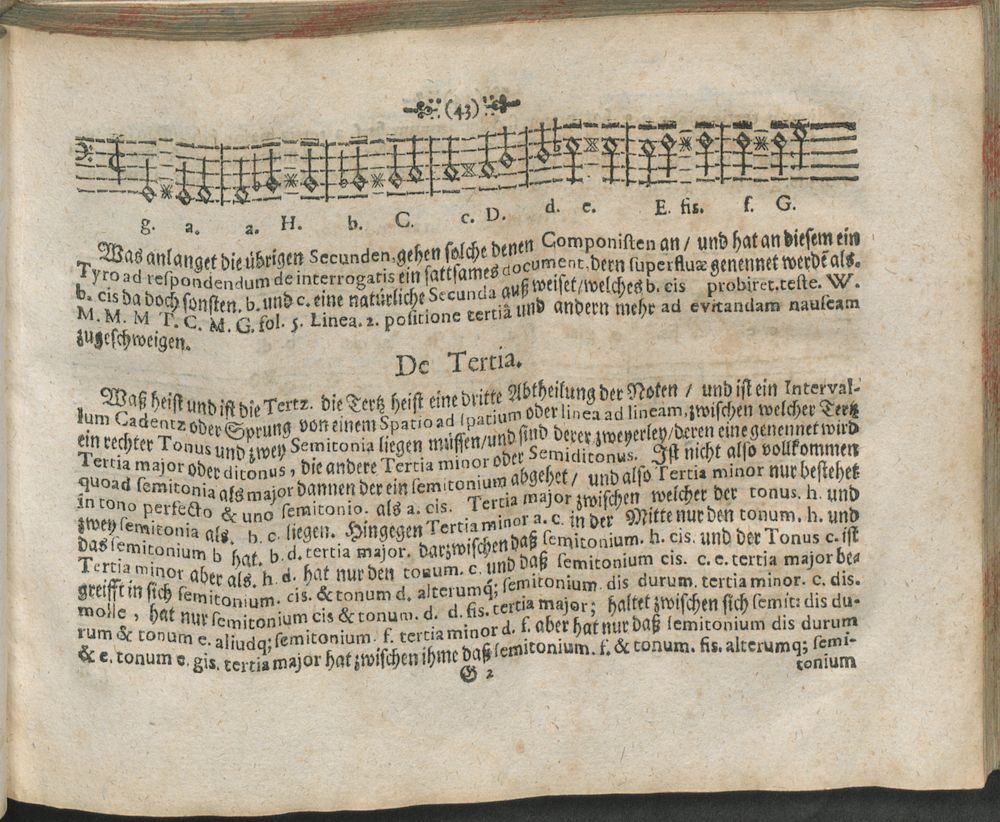 (43)
g. a. a. H. b. C. c. D. d. e. E. fis. f. G.
Was anlanget die übrigen Secunden, gehen solche denen Componisten an / und hat an diesem ein
Tyro ad respondendum de interrogatis ein sattsames document, dern superfluæ genennet werdẽ als.
b. cis da doch sonsten. b. und c. eine natürliche Secunda auß weiset / welches b. cis probiret. teste. W.
M. M. M T. C. M. G. fol. 5. Linea. 2. positione tertiâ und andern mehr ad evitandam nauseam
zugeschweigen.
De Tertia.
Waß heist und ist die Tertz. die Tertz heist eine dritte Abtheilung der Noten / und ist ein Interval-
lum Cadentz oder Sprung von einem Spatio ad spatium oder linea ad lineam, zwischen welcher Tertz
ein rechter Tonus und zwey Semitonia liegen müssen / und sind derer zweyerley / deren eine genennet wird
Tertia major oder ditonus, die andere Tertia minor oder Semiditonus. Ist nicht also vollkommen
quoad semitonia als major dannen der ein semitonium abgehet / und also Tertia minor nur bestehet
in tono perfecto & uno semitonio. als a. cis. Tertia major zwischen welcher der tonus. h. und
zwey semitonia als. b. c. liegen. Hingegen Tertia minor a. c. in der Mitte nur den tonum. h. und
das semitonium b hat. b. d. tertia major. darzwischen daß semitonium. h. cis. und der Tonus c. ist
Tertia minor aber als. h. d. hat nur den tonum. c. und daß semitonium cis. c. e. tertia major be-
greifft in sich semitonium. cis. & tonum d. alterumq; semitonium dis durum. tertia minor. c. dis.
molle, hat nur semitonium cis & tonum. d. d. fis. tertia major; haltet zwischen sich semit: dis du-
rum & tonum e. aliudq; semitonium. f. tertia minor d. f. aber hat nur daß semitonium dis durum
& e. tonum e. gis. tertia major hat zwischen ihme daß semitonium. f. & tonum. fis. alterumq; semi-
G 2 tonium